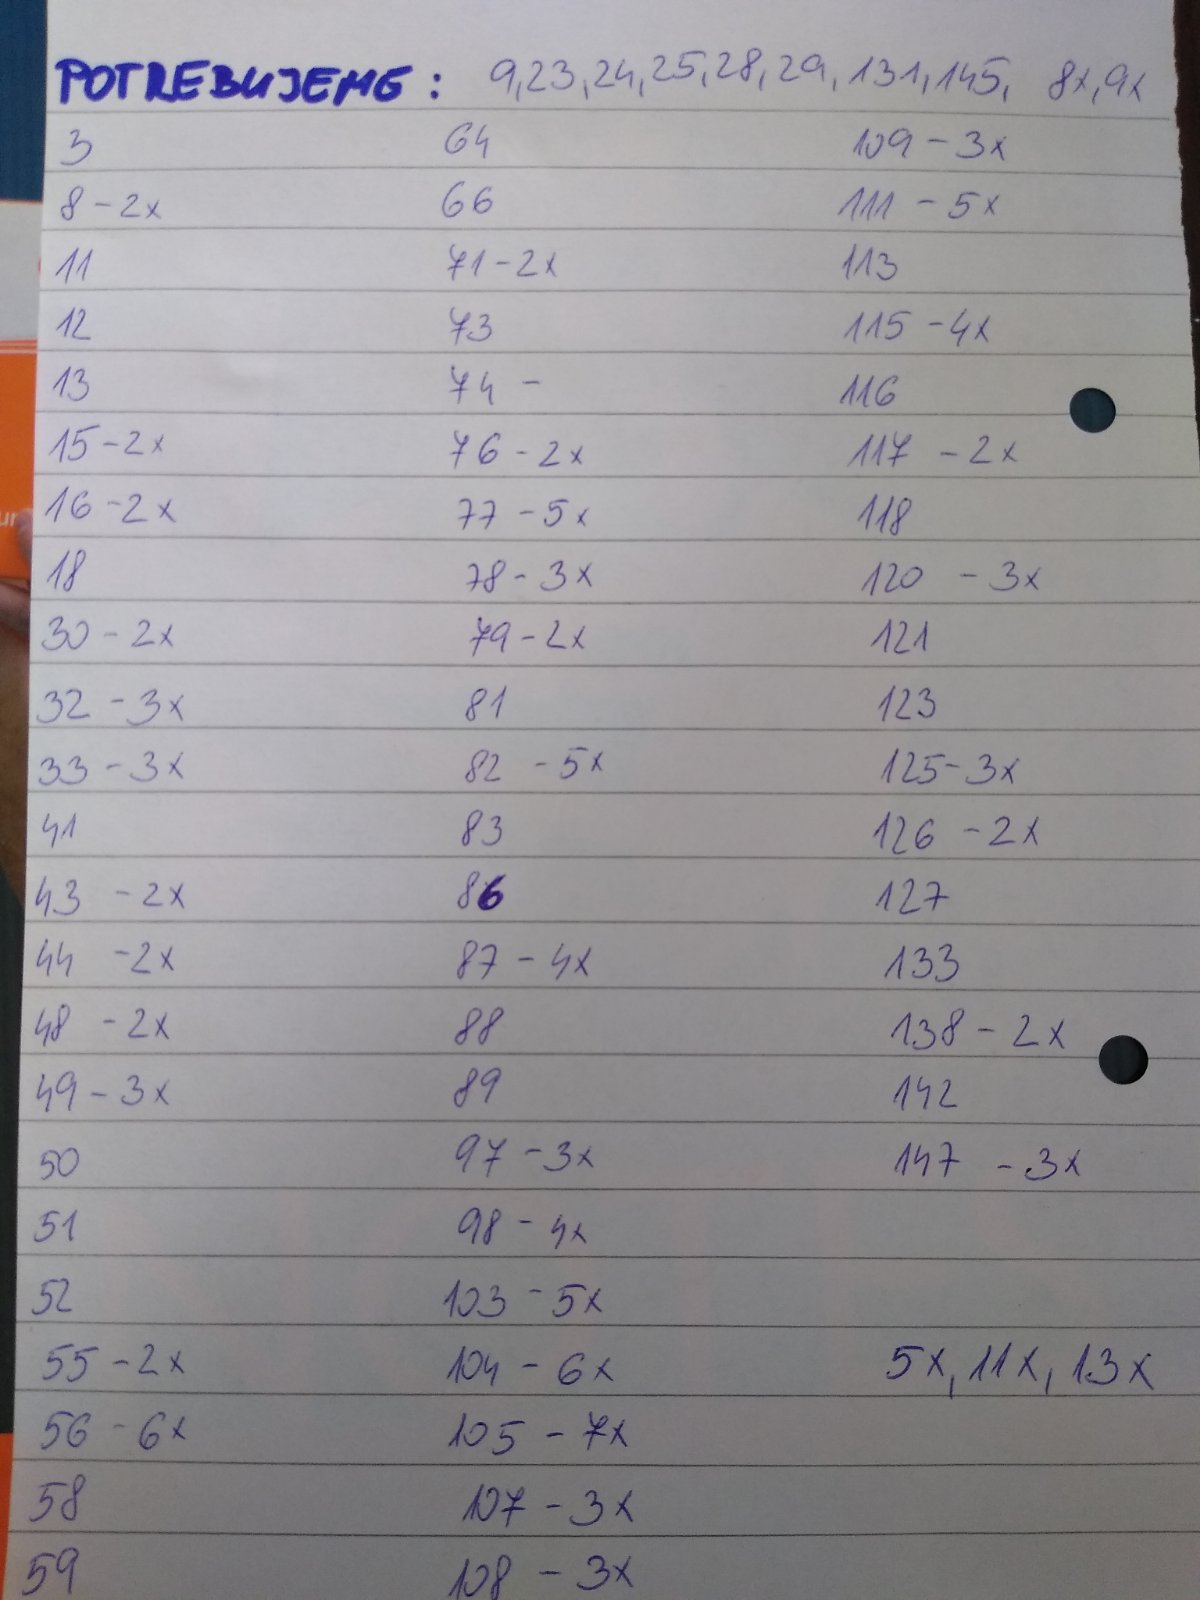 POTREBUJEME: 9,23,24,25,28,29,131,145, 8x,9x
3
8-2x
11
12
13
15-2x
16-2x
18
30-2x
32-3x
33-3x
41
43-2x
44-2x
48-2x
49-3x
50
51
52
55-2x
56-6x
58
59
64
66
71-2x
73
74-
76-2x
77-5x
78-3x
79-2x
81
82-5x
83
86
87-4x
88
89
97-3x
98-4x
103-5x
104-6x
105-7x
107-3x
108-3x
109-3x
111-5x
113
115-4x
116
117-2x
118
120-3x
121
123
125-3x
126-2x
127
133
138-2x
142
147-3x
5x,11x,13x